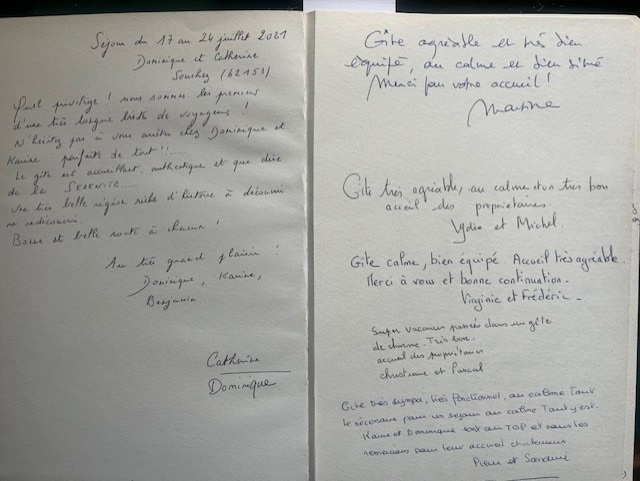 Séjour du 17 au 24 juillet 2021
Dominique et Catherine
Souchez (62153)
Quel privilège ! nous sommes les premiers
d'une très longue liste de voyageurs !
N'hésitez pas à vous arrêter chez Dominique et
Karine parfaits de tout !!....
Le gîte est accueillant, authentique et que dire
de la SERENITE.....
Une très belle région riche d'histoire à découvrir
ou redécouvrir.
Bonne et belle route à chacun !
Au très grand plaisir !
Dominique, Karine,
Benjamin
Catherine
Dominique
Gîte agréable et très bien
équipé, au calme et bien situé
Merci pour votre accueil !
Martine
Gîte très agréable, au calme et un très bon
accueil des propriétaires.
Lydie et Michel.
Gîte calme, bien équipé Accueil très agréable.
Merci à vous et bonne continuation.
Virginie et Frédéric.
Super vacances passées dans un gîte
de charme. Très bon
accueil des propriétaires
christiane et Pascal
Gite très sympa, très fonctionnel, au calme Tout
le nécessaire pour un séjour au calme Tout y est.
Karine et Dominique sont au TOP et nous les
remercions pour leur accueil chaleureux.
et Sandrine